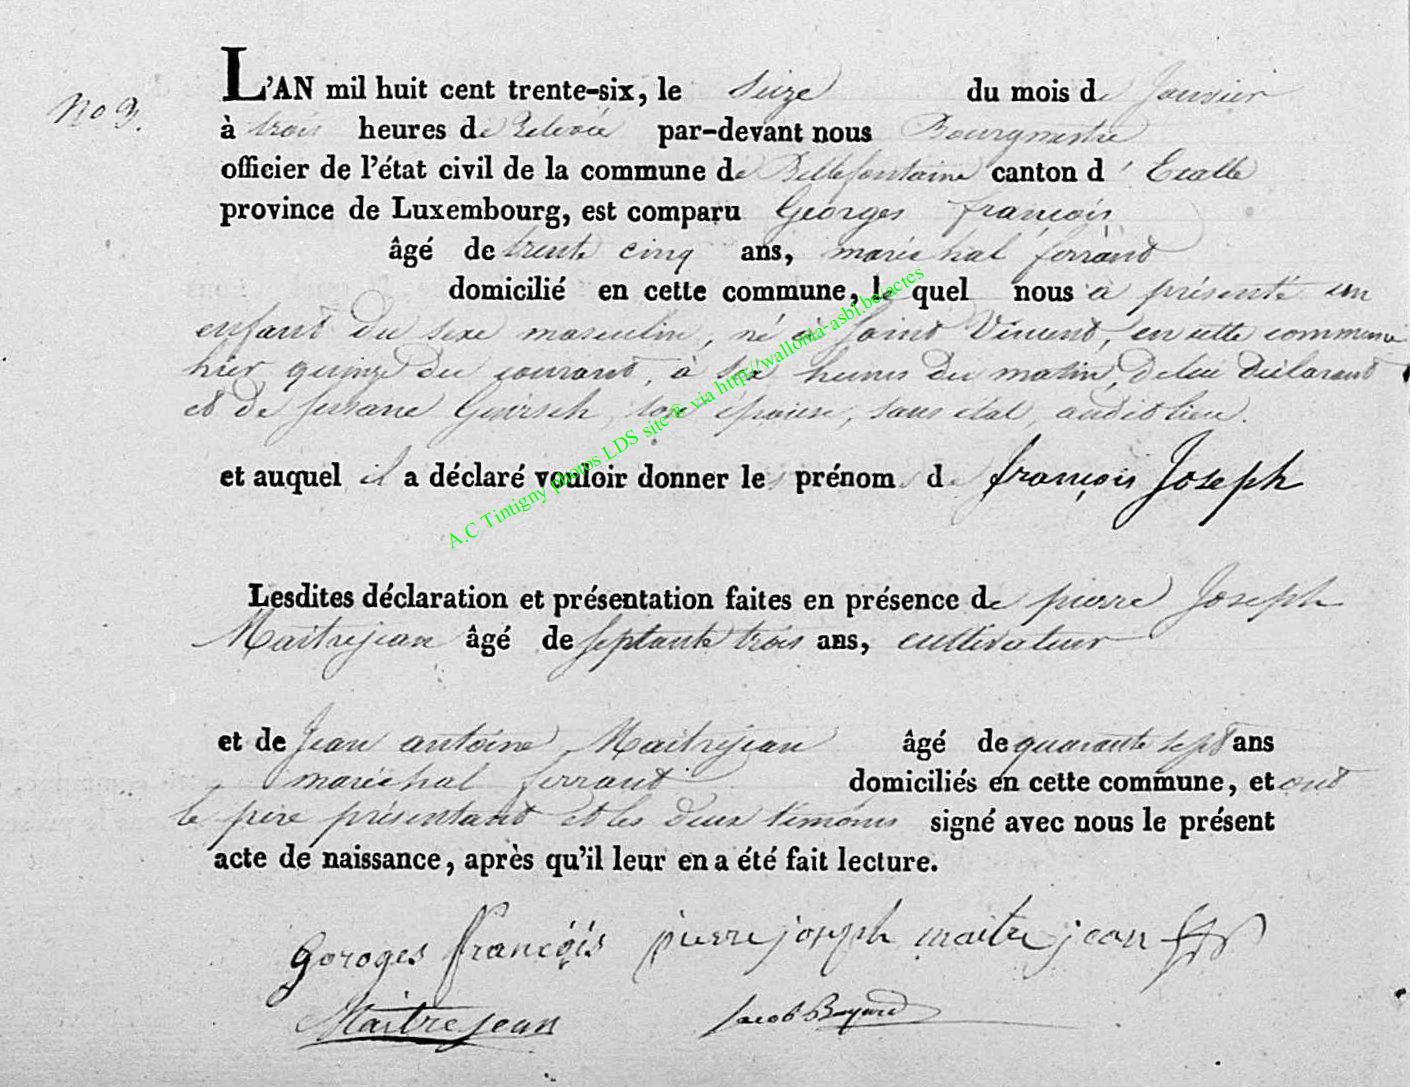 No 3.
L'AN mil huit cent trente-six, le Seize du mois de Janvier
à trois heures de Relevée par-devant nous Bourgmestre
officier de l'état civil de la commune de Bellefontaine canton d' Etalle
province de Luxembourg, est comparu Georges françois
âgé de trente cinq ans, maréchal ferrant
domicilié en cette commune, le quel nous a présenté un
enfant du sexe masculin, né à Saint Vincent, en cette commune
hier quinze du courant, à six heures du matin, de lui déclarant
et de Susane Guirsch, son épouse, sans etat, audit lieu.
et auquel il a déclaré vouloir donner les prénoms de françois Joseph
Lesdites déclaration et présentation faites en présence de pierre Joseph
Maitrejean âgé de septante trois ans, cultivateur
et de Jean antoine Maitrejean âgé de quarante sept ans
maréchal ferrant domiciliés en cette commune, et ont
le père présentant et les deux témoins signé avec nous le présent
acte de naissance, après qu'il leur en a été fait lecture.
goroges françois pierre joseph maitre jean
Maitrejean Jacob Bayard
A.C Tintigny photos LDS site® via http://wallonia-asbl.be/actes